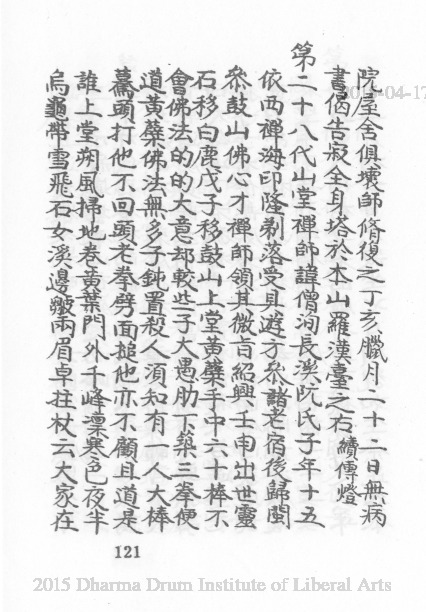 院屋舍俱壞師脩復之丁亥臘月二十二日無病
書偈告寂全身塔於本山羅漢臺之右續傳燈
第二十八代山堂禪師諱僧洵長溪阮氏子年十五
依西禪海印隆剃落受具遊方參諸老宿後歸閩
參鼓山佛心才禪師領其微旨紹興壬申出世靈
石移白鹿戊子移鼓山上堂黃蘗手中六十棒不
會佛法的的大意却較些子大愚肋下築三拳便
道黃蘗佛法無多子鈍置殺人須知有一人大棒
驀頭打他不回頭老拳劈面搥他亦不顧且道是
誰上堂朔風掃地卷黃葉門外千峰凜寒色夜半
烏龜帶雪飛石女溪邊皺兩眉卓拄杖云大家在
121
2015 Dharma Drum Institute of Liberal Arts